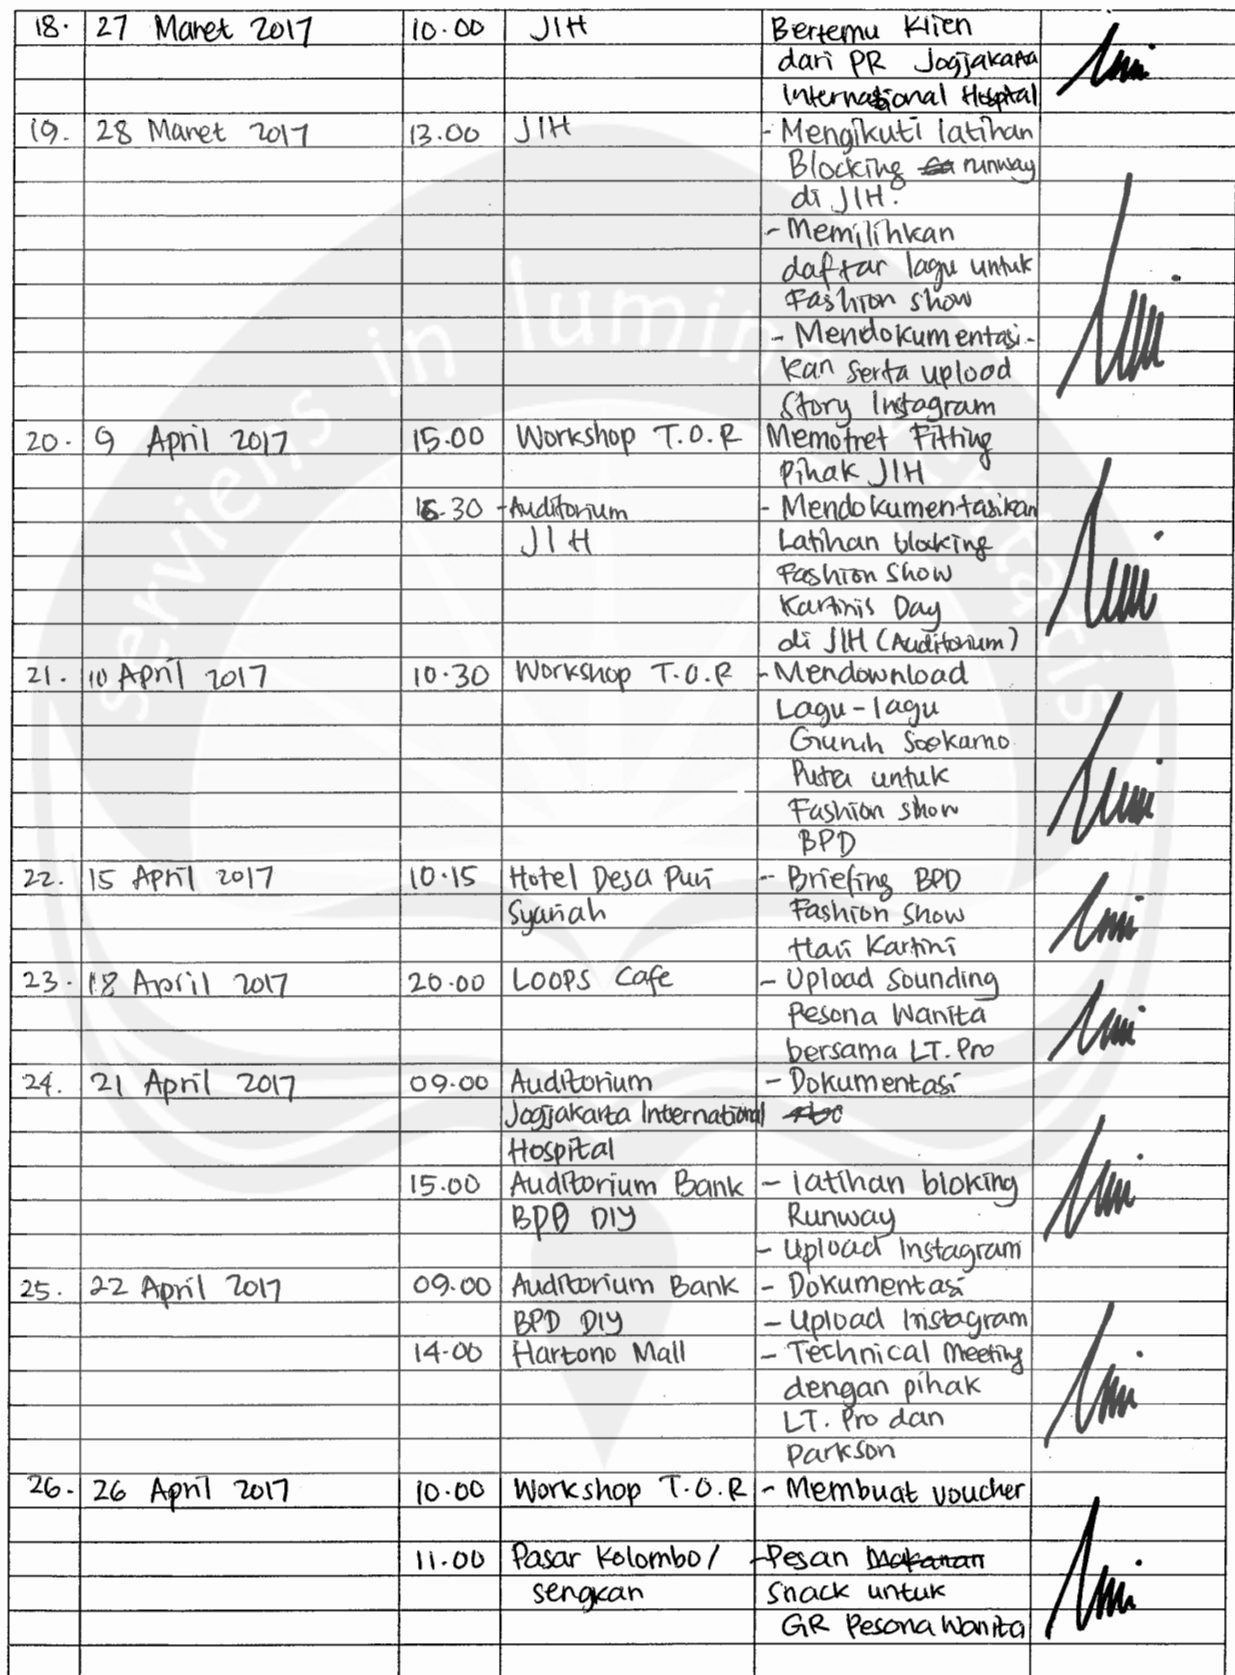 18. 27 Maret 2017 10.00 JIH Bertemu Klien
dari PR Jogjakarta
Internasional Hospital
19. 28 Maret 2017 13.00 JIH - Mengikuti latihan
Blocking runway
di JIH.
- Memilihkan
daftar lagu untuk
Fashion show
- Mendokumentasi-
kan serta upload
Story Instagram
20. 9 April 2017 15.00 Workshop T.O.R Memotret Fitting
Pihak JIH
30 - Auditorium - Mendokumentasikan
JIH Latihan blocking
Fashion Show
Kartinis Day
di JIH (Auditorium)
21. 10 April 2017 10.30 Workshop T.O.R - Mendownload
Lagu-lagu
Guruh Soekarno
Putra untuk
Fashion show
BPD
22. 15 April 2017 10.15 Hotel Desa Puri - Briefing BPD
Syariah Fashion Show
Hari Kartini
23. 18 April 2017 20.00 LOOPS Cafe - Upload Sounding
Pesona Wanita
bersama LT. Pro
24. 21 April 2017 09.00 Auditorium - Dokumentasi
Jogjakarta International
Hospital
15.00 Auditorium Bank - latihan bloking
BPD DIY Runway
- Upload Instagram
25. 22 April 2017 09.00 Auditorium Bank - Dokumentasi
BPD DIY - Upload Instagram
14.00 Hartono Mall - Technical Meeting
dengan pihak
LT. Pro dan
Parkson
26. 26 April 2017 10.00 Workshop T.O.R - Membuat voucher
11.00 Pasar Kolombo/ - Pesan Makanan
sengkan Snack untuk
GR Pesona Wanita
serviens in lumine veritatis